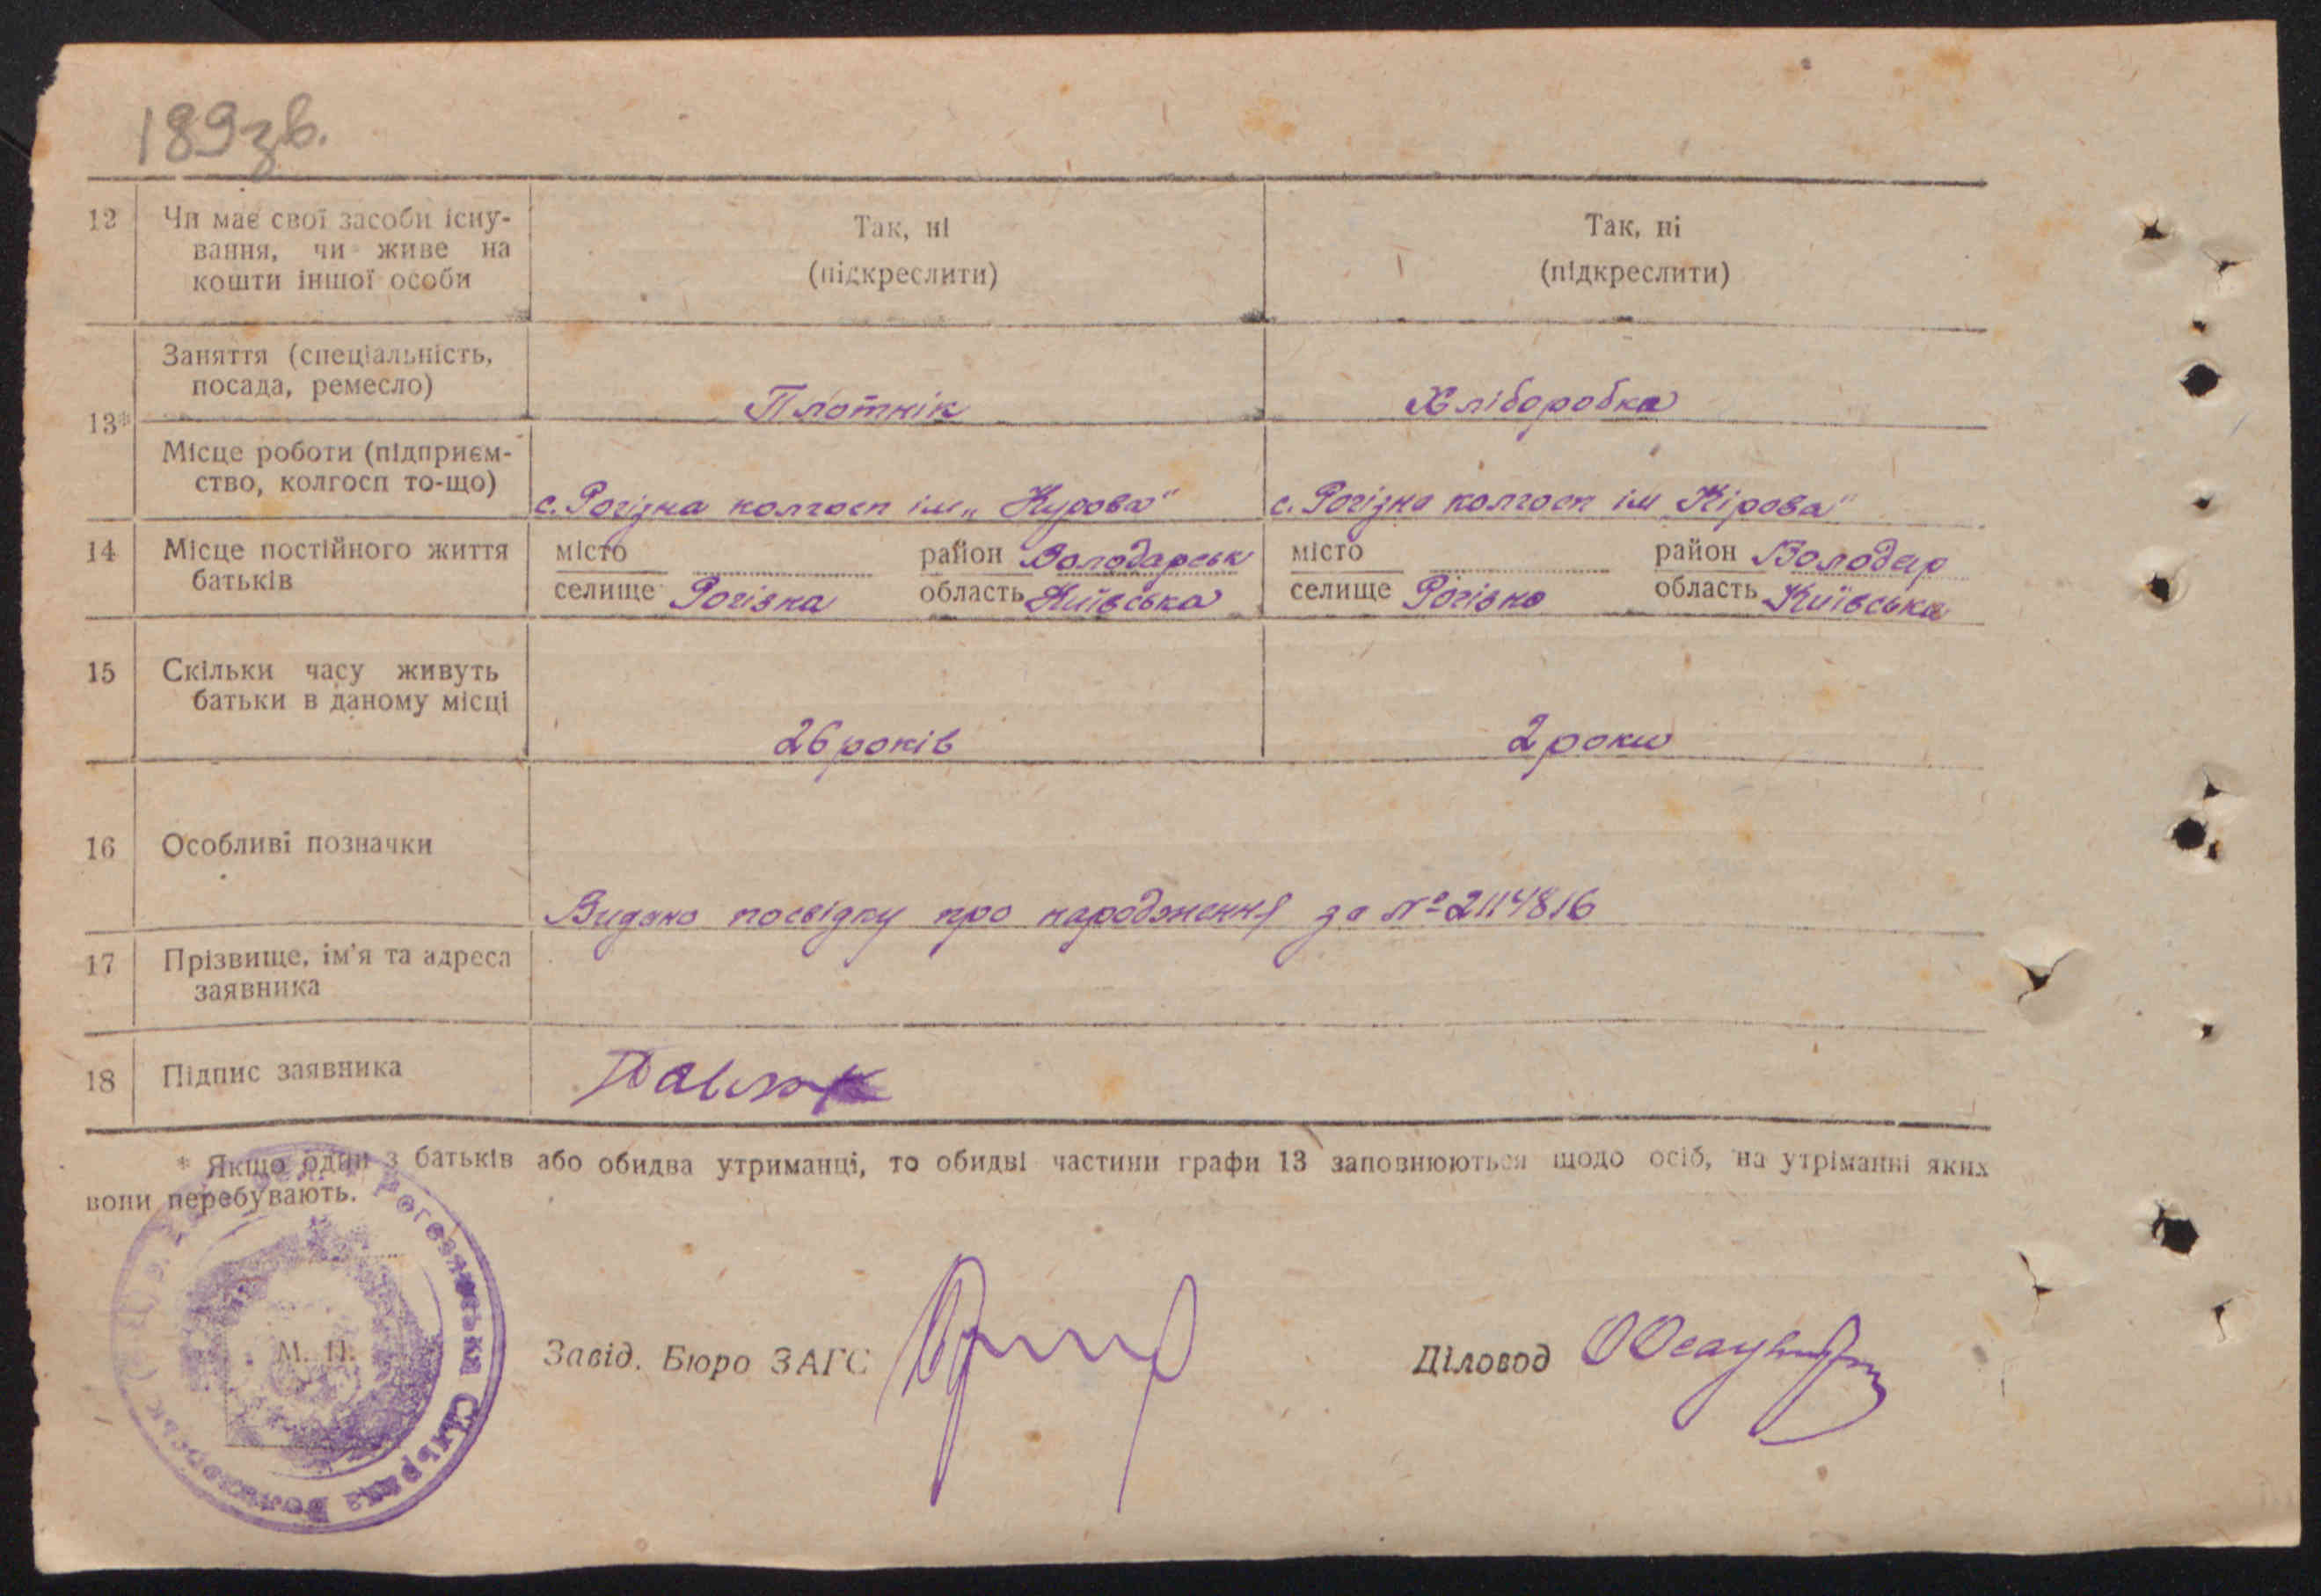 189зв.
12 Чи має свої засоби існу- Так, ні Так, ні
вання, чи живе на (підкреслити) (підкреслити)
кошти іншої особи
Заняття (спеціальність,
посада, ремесло) Плотнік Хліборобка
13*
Місце роботи (підприєм-
ство, колгосп то-що) с. Рогізна колгосп ім „Кірова" с. Рогізна колгосп ім Кірова"
14 Місце постійного життя місто район Володарськ місто район Володар
батьків селище Рогізна область Київська селище Рогізна область Київська
15 Скільки часу живуть
батьки в даному місці 26 років 2 роки
16 Особливі позначки
Видано посвідку про народження за № 2114816
17 Прізвище, ім'я та адреса
заявника
18 Підпис заявника Павлюк
* Якщо один з батьків або обидва утриманці, то обидві частини графи 13 заповнюються щодо осіб, на утріманні яких
вони перебувають.
М. П.
Завід. Бюро ЗАГС Діловод